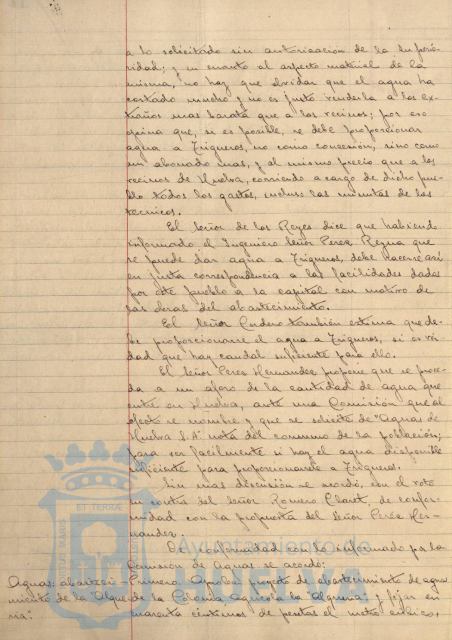 a lo solicitado sin autorizacion de la Superio-
ridad; y en cuanto al aspecto material de la
misma, no hay que olvidar que el agua ha
costado mucho y no es justo venderla a los ex-
traños mas barata que a los vecinos; por eso
opina que, si es posible, se debe proporcionar
agua a Trigueros, no como concesión, sino como
un abonado mas, y al mismo precio que a los
vecinos de Huelva, corriendo a cargo de dicho pue-
blo todos los gastos, incluso las minutas de los
tecnicos.
El Señor de los Reyes dice que habiendo
informado el Ingeniero Señor Perez Reyna que
se puede dar agua a Trigueros, debe hacerse asi
en justa correspondencia a las facilidades dadas
por este pueblo a la capital con motivo de
las obras del abastecimiento.
El Señor Cordero tambien estima que de-
be proporcionarse el agua a Trigueros, si es ver-
dad que hay caudal suficiente para ello.
El Señor Perez Hernandez propone que se proce-
da a un aforo de la cantidad de agua que
entre en Huelva, ante una Comisión que al
efecto se nombre y que se solicite de "Aguas de
Huelva S.A" nota del consumo de la población;
para ver facilmente si hay el agua disponible
suficiente para proporcionarse a Trigueros.
Sin mas discusión se acordó, con el voto
en contra del Señor Romero, de confor-
midad con la propuesta del Señor Perez Her-
nandez.
De conformidad con lo informado por la
Comisión de Aguas se acordó:
Aguas: abasteci-
miento de la "Alque-
ria".
Primero. Aprobar proyecto de abastecimiento de agua
de la Colonia Agricola la "Alqueria" y fijar en
cuarenta centimos de pesetas el metro cubico,
ET TERRA
Ayuntamiento de
HUELVA